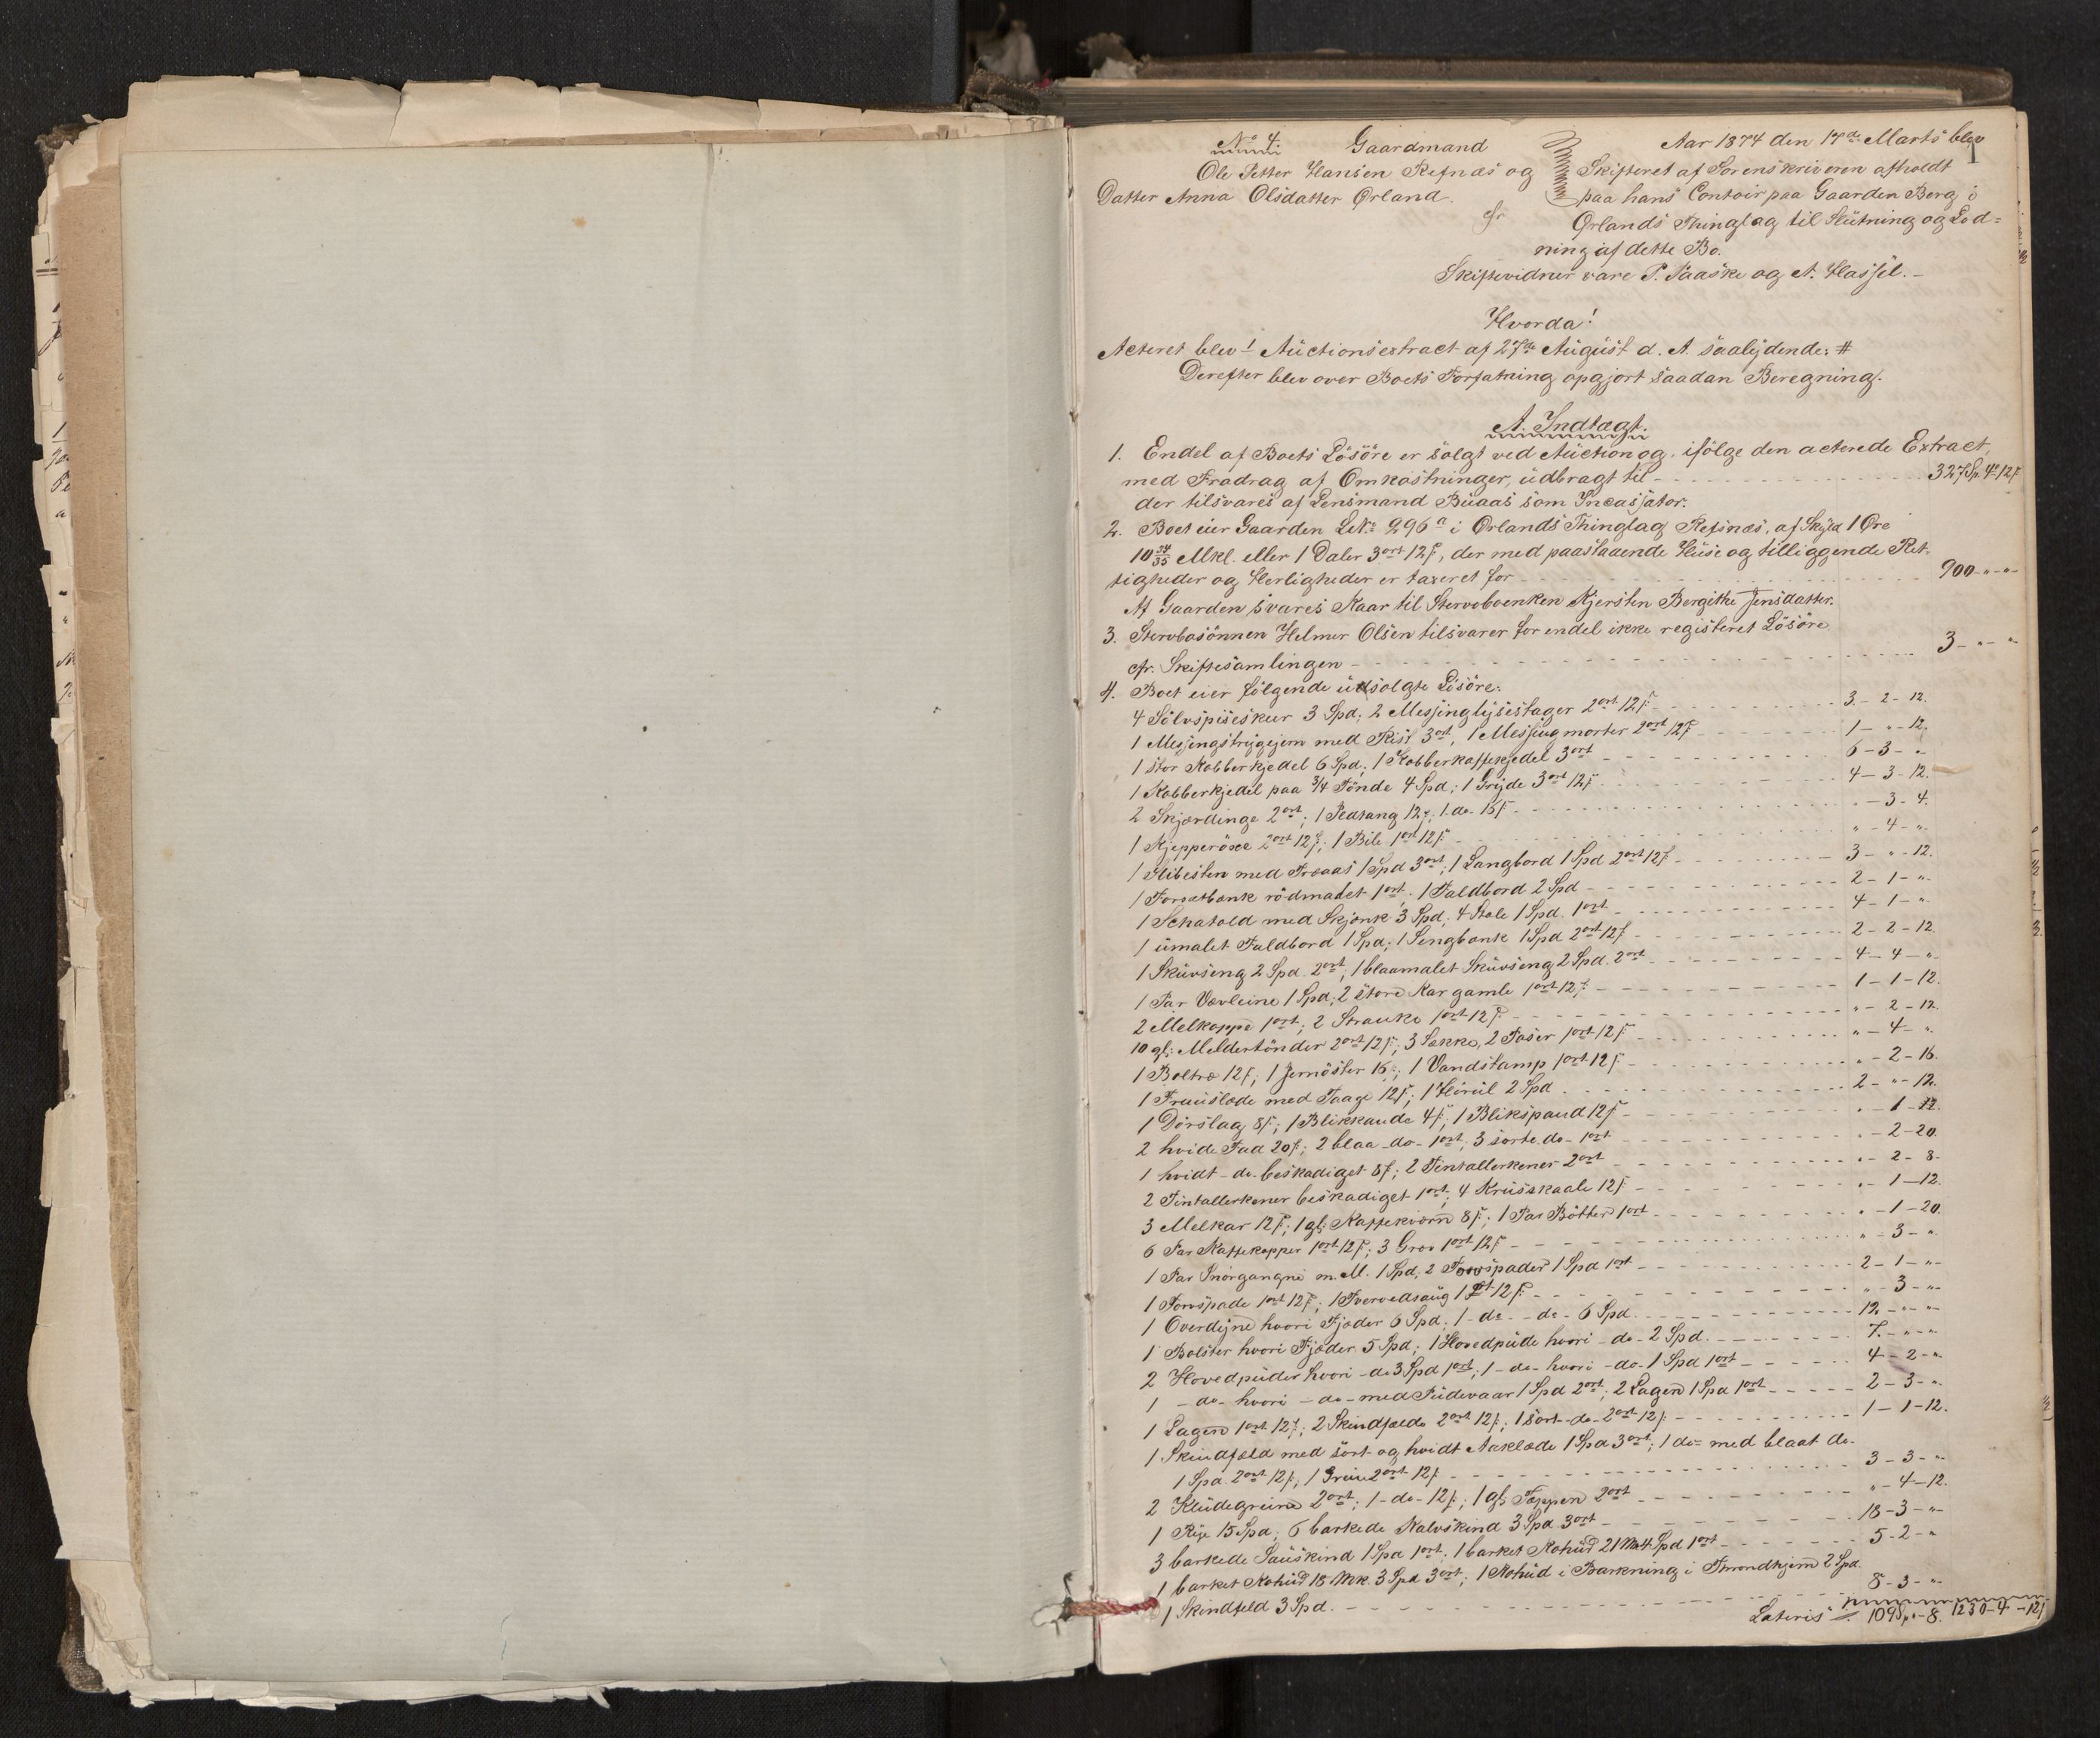 1
No 4.
Gaardmand
Ole Petter Hansen Refnæs og
Datter Anna Olsdatter Ørland.
Aar 1874 den 17de Marts blev
Skifteret af Sorenskriveren afholdt
paa hans Contoir paa Gaarden Berg i
Ørlands Thinglag til Slutning og Lod=
ning af dette Bo.
Skiftevidner vare P. Paaske og A. Hassel.-
Hvorda!
Acteret blev! Auctionsextract af 27de August d. A. saalydende: #
Derefter blev over Boets Forfatning opgjort saadan Beregning.
A. Indtægt.
1. Endel af Boets Lösöre er solgt ved Auction og, ifölge den acterede Extract,
med Fradrag af Omkostninger, udbragt til - 327 Sp. 4 ort 12 f
der tilsvares af Lensmand Buaas som Incassator.
2. Boet eier Gaarden L.No 296a i Ørlands Thinglag Refsnæs, af Skyld 1 Øre
10 34/35 Mkl. eller 1 Daler 3 ort 12 f, der med paastaaende Huse og tilliggende Ret-
tigheder og Herligheder er taxeret for - 900 - " - "
Af Gaarden svares Kaar til Stervboenken Kjersten Bergitte Jensdatter.
3. Stervbosönnen Helmer Olsen tilsvarer for endel ikke registeret Lösöre
cfr. Skiftesamlingen - 3 - " - "
4. Boet eier fölgende usolgte Lösöre:
4 Sölvspiseskeer 3 Spd; 2 Messinglysestager 2 ort 12 f - 3 - 2 - 12.
1 Messingstrygejern med Rist 3 ort, 1 Messing morter 2 ort 12 f - 1 - " - 12.
1 stor Kobberkjedel 6 Spd; 1 Kobberkaffekjedel 3 ort - 6 - 3 - "
1 Kobberkjedel paa 3/4 Tönde 4 Spd; 1 Gryde 3 ort 12 f - 4 - 3 - 12.
2 Skjærdinge 2 ort; 1 12 f; 1 do. 16 f - " - 3 - 4.
1 Kjepperöxe 2 ort 12 f; 1 Bile 1 ort 12 f - " - 4 - "
1 Slibesten med Træaas 1 Spd 3 ort; 1 Langbord 1 Spd 2 ort 12 f - 3 - " - 12.
1 Forsætbænk rödmalet 1 ort; 1 Faldbord 2 Spd - 2 - 1 - "
1 Schatold med Skjænk 3 Spd; 4 Stole 1 Spd. 1 ort - 4 - 1 - "
1 umalet Faldbord 1 Spd; 1 Sengbænk 1 Spd 2 ort 12 f - 2 - 2 - 12
1 Skuvseng 2 Spd. 2 ort; 1 blaamalet Skuvseng 2 Spd. 2 ort - 4 - 4 - "
1 Par 1 Spd; 2 store Kar gamle 1 ort 12 f - 1 - 1 - 12.
2 Melkoppe 1 ort; 2 1 ort 12 f - " - 2 - 12.
10 gl: Meldertönder 2 ort 12 f; 3 Sække, 2 Poser 1 ort 12 f - " - 4 - "
1 12 f; 1 16 f; 1 Vandstamp 1 ort 12 f - " - 2 - 16.
1 med Taage 12 f; 1 2 Spd - 2 - " - 12.
1 Dörslag 8 f; 1 Blikkande 4 f; 1 Blikspand 12 f - " - 1 - 12.
2 hvide Fad 20 f; 2 blaa - do - 1 ort; 3 sorte do - 1 ort - " - 2 - 20.
1 hvidt - do - beskadiget 8 f; 2 Tintallerkener 2 ort - " - 2 - 8.
2 Tintallerkener beskadiget 1 ort; 4 Krusskaale 12 f - " - 1 - 12.
3 Melkar 12 f; 1 gl: Kaffekværn 8 f; 1 Par Bötter 1 ort - " - 1 - 20.
6 Par Kaffekopper 1 ort 12 f; 3 1 ort 12 f - " - 3 - "
1 Par m. M. 1 Spd; 2 Torvspader 1 Spd 1 ort - 2 - 1 - "
1 Torvspade 1 ort 12 f; 1 Tvervedsaug 1 ort 12 f - " - 3 - "
1 Overdyne hvori Fjæder 6 Spd; 1 - do - do - 6 Spd. - 12 - " - "
1 Bolster hvori Fjæder 5 Spd; 1 Hovedpude hvori - do - 2 Spd. - 7 - " - "
2 Hovedpuder hvori - do 3 Spd 1 ort; 1 - do - hvori - do - 1 Spd 1 ort - 4 - 2 - "
1 - do - hvori - do - med Pudevaar 1 Spd 2 ort; 2 Lagen 1 Spd 1 ort - 2 - 3 - "
1 Lagen 1 ort 12 f; 2 Skindfælde 2 ort 12 f; 1 sort - do - 2 ort 12 f - 1 - 1 - 12.
1 Skindfeld med sort og hvidt Aaklæde 1 Spd 3 ort; 1 do - med blaat do.
1 Spd 2 ort 12 f; 1 2 ort 12 f - 3 - 3 - "
2 2 ort; 1 - do - 12 f; 1 gl: Teppen 2 ort - " - 4 - 12.
1 Kje 15 Spd; 6 barkede Kalvskind 3 Spd 3 ort - 18 - 3 - "
3 barkede Sauskind 1 Spd 1 ort; 1 barket Kohud 21 Mk 4 Spd 1 ort - 5 - 2 - "
1 barket Kohud 18 Mk. 3 Spd 3 ort; 1 Kohud i Barkning i Throndhjem 2 Spd
1 Skindfeld 3 Spd. - 8 - 3 - "
Lateris 109 Sp. " - 8. 1230 - 4 - 12 f